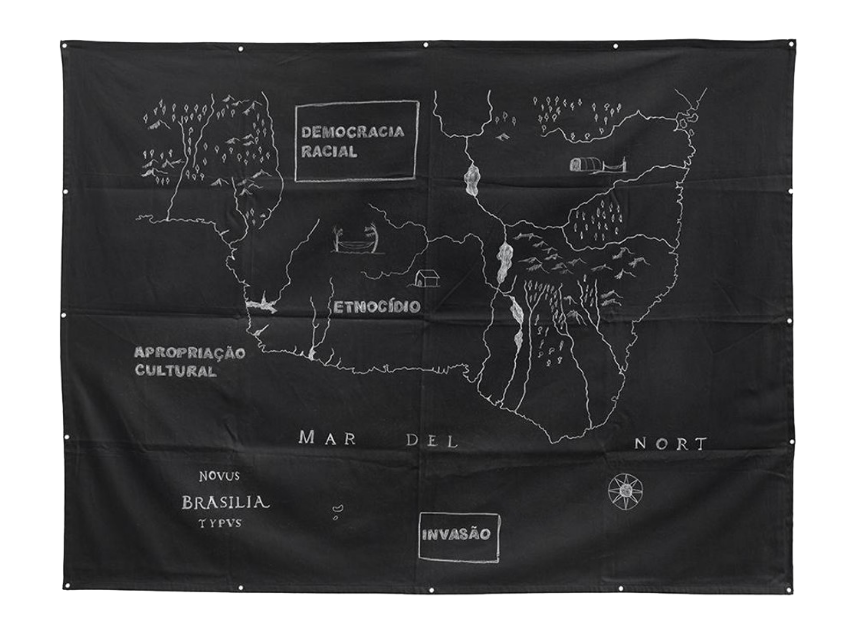 DEMOCRACIA
RACIAL
ETNOCÍDIO
APROPRIAÇÃO
CULTURAL
MAR DEL NORT
NOVUS
BRASILIA
TYPVS
INVASÃO